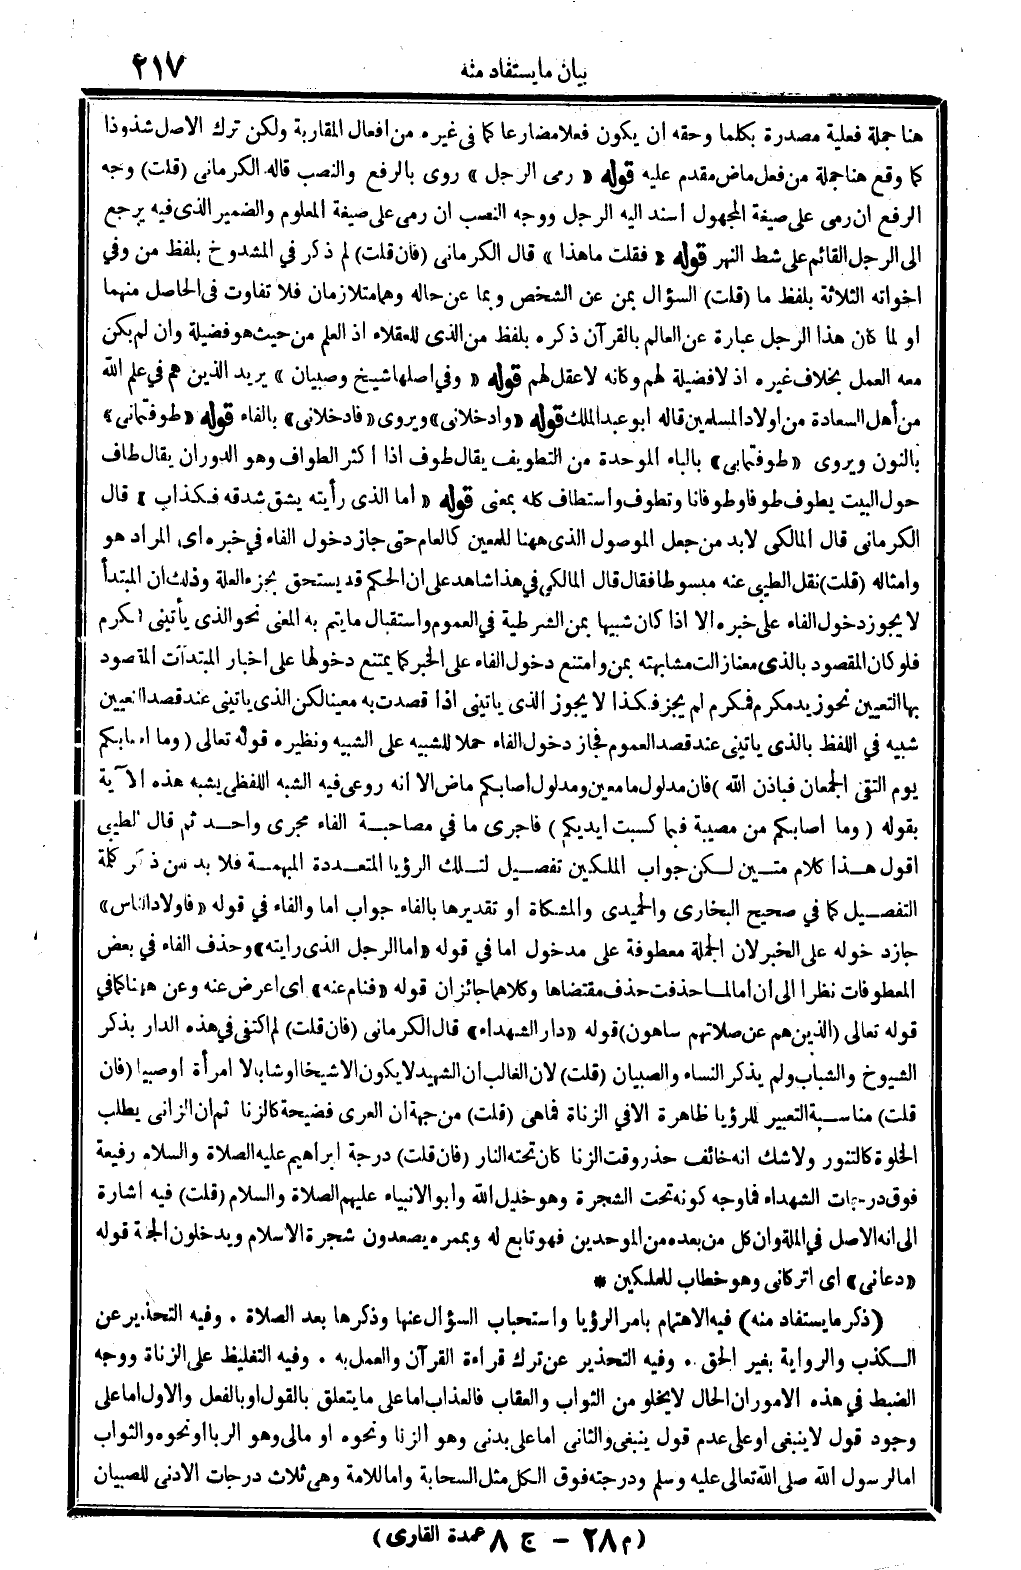 بيان مايستفاد منه ٢١٧
هنا جملة فعلية مصدرة بكلما وحقه ان يكون فعلا مضارعا كما فى غيره من افعال المقاربة ولكن ترك الاصل شذوذا
كما وقع هنا جملة من فعل ماض مقدم عليه قوله « رمى الرجل » روى بالرفع والنصب قاله الكرمانى (قلت) وجه
الرفع ان رمى على صيغة المجهول اسند اليه الرجل ووجه النصب ان رمى على صيغة المعلوم والضمير الذى فيه يرجع
الى الرجل القائم على شط النهر قوله « فقلت ماهذا » قال الكرمانى (فان قلت) لم ذكر في المشدوخ بلفظ من وفي
اخواته الثلاثة بلفظ ما (قلت) السؤال بمن عن الشخص وبما عن حاله وهما متلازمان فلا تفاوت فى الحاصل منهما
او لما كان هذا الرجل عبارة عن العالم بالقرآن ذكره بلفظ من الذى للعقلاء اذ العلم من حيث هو فضيلة وان لم يكن
معه العمل بخلاف غيره اذ لا فضيلة لهم وكانه لا عقل لهم قوله « وفي اصلها شيخ وصبيان » يريد الذين هم في علم الله
من أهل السعادة من اولاد المسلمين قاله ابو عبد الملك قوله «وادخلانى» ويروى «فادخلانى» بالفاء قوله «طوفتمانى»
بالنون ويروى «طوفتمابى» بالباء الموحدة من التطويف يقال طوف اذا اكثر الطواف وهو الدوران يقال طاف
حول البيت يطوف طوفا وطوفانا وتطوف واستطاف كله بمعنى قوله « اما الذى رأيته يشق شدقه فكذاب » قال
الكرمانى قال المالكى لابد من جعل الموصول الذى ههنا للمعين كالعام حتى جاز دخول الفاء في خبره اى المراد هو
وامثاله (قلت) نقل الطيبى عنه مبسوطا فقال قال المالكى في هذا شاهد على ان الحكم قد يستحق بجزء العلة وذلك ان المبتدأ
لا يجوز دخول الفاء على خبره الا اذا كان شبيها بمن الشرطية في العموم واستقبال مايتم به المعنى نحو الذى يأتينى فمكرم
فلو كان المقصود بالذى معنا زالت مشابهته بمن وامتنع دخول الفاء على الخبر كما يمتنع دخولها على اخبار المبتدآت المقصود
بها التعيين نحو زيد مكرم فمكرم لم يجز فكذا لا يجوز الذى ياتينى اذا قصدت به معينا لكن الذى ياتينى عند قصد التعيين
شبيه في اللفظ بالذى ياتينى عند قصد العموم فجاز دخول الفاء حملا للشبيه على الشبيه ونظيره قوله تعالى ( وما اصابكم
يوم التقى الجمعان فباذن الله ) فان مدلول ما معين ومدلول اصابكم ماض الا انه روعى فيه الشبه اللفظى يشبه هذه الآية
بقوله ( وما اصابكم من مصيبة فبما كسبت ايديكم ) فاجرى ما في مصاحبة الفاء مجرى واحد ثم قال الطيبى
اقول هذا كلام متين لكن جواب الملكين تفصيل لتلك الرؤيا المتعددة المبهمة فلا بد من ذكر كلمة
التفصيل كما في صحيح البخارى والحميدى والمشكاة او تقديرها بالفاء جواب اما والفاء في قوله «فاولاد الناس»
جاز دخوله على الخبر لان الجملة معطوفة على مدخول اما في قوله «اما الرجل الذى رايته» وحذف الفاء في بعض
المعطوفات نظرا الى ان اما لما حذفت حذف مقتضاها وكلاهما جائزان قوله «فنام عنه» اى اعرض عنه وعن هنا كما في
قوله تعالى (الذين هم عن صلاتهم ساهون) قوله «دار الشهداء» قال الكرمانى (فان قلت) لم اكتفى في هذه الدار بذكر
الشيوخ والشباب ولم يذكر النساء والصبيان (قلت) لان الغالب ان الشهيد لا يكون الا شيخا او شابا لا امرأة او صبيا (فان
قلت) مناسبة التعبير للرؤيا ظاهرة الا في الزناة فما هى (قلت) من جهة ان العرى فضيحة كالزنا ثم ان الزانى يطلب
الخلوة كالتنور ولا شك انه خائف حذر وقت الزنا كان تحته النار (فان قلت) درجة ابراهيم عليه الصلاة والسلام رفيعة
فوق درجات الشهداء فما وجه كونه تحت الشجرة وهو خليل الله وابو الانبياء عليهم الصلاة والسلام (قلت) فيه اشارة
الى انه الاصل في الملة وان كل من بعده من الموحدين فهو تابع له وبممره يصعدون شجرة الاسلام ويدخلون الجنة قوله
«دعانى» اى اتركانى وهو خطاب للملكين *
(ذكر مايستفاد منه) فيه الاهتمام بامر الرؤيا واستحباب السؤال عنها وذكرها بعد الصلاة . وفيه التحذير عن
الكذب والرواية بغير الحق . وفيه التحذير عن ترك قراءة القرآن والعمل به . وفيه التغليظ على الزناة ووجه
الضبط في هذه الامور ان الحال لا يخلو من الثواب والعقاب فالعذاب اما على مايتعلق بالقول او بالفعل والاول اما على
وجود قول لا ينبغى او على عدم قول ينبغى والثانى اما على بدنى وهو الزنا ونحوه او مالى وهو الربا او نحوه والثواب
اما لرسول الله صلى الله تعالى عليه وسلم ودرجته فوق الكل مثل السحابة واما للامة وهى ثلاث درجات الادنى للصبيان
(م ٢٨ – ج ٨ عمدة القارى)